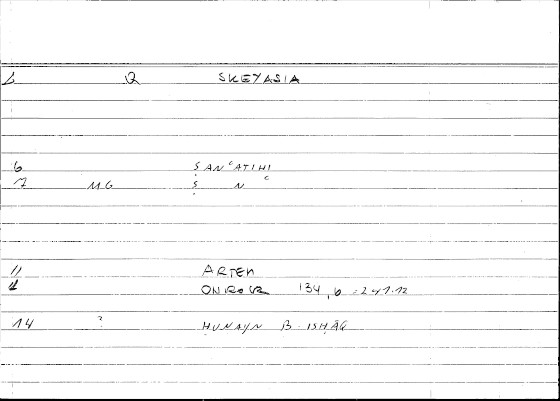 1 Q SKEYASIA
6 ṢANʿATIHI
7 MG Ṣ N ʿ
11 ARTEM
ONIROCR 134, 6 = 241.12
14 ? ḤUNAYN B. ISḤĀQ